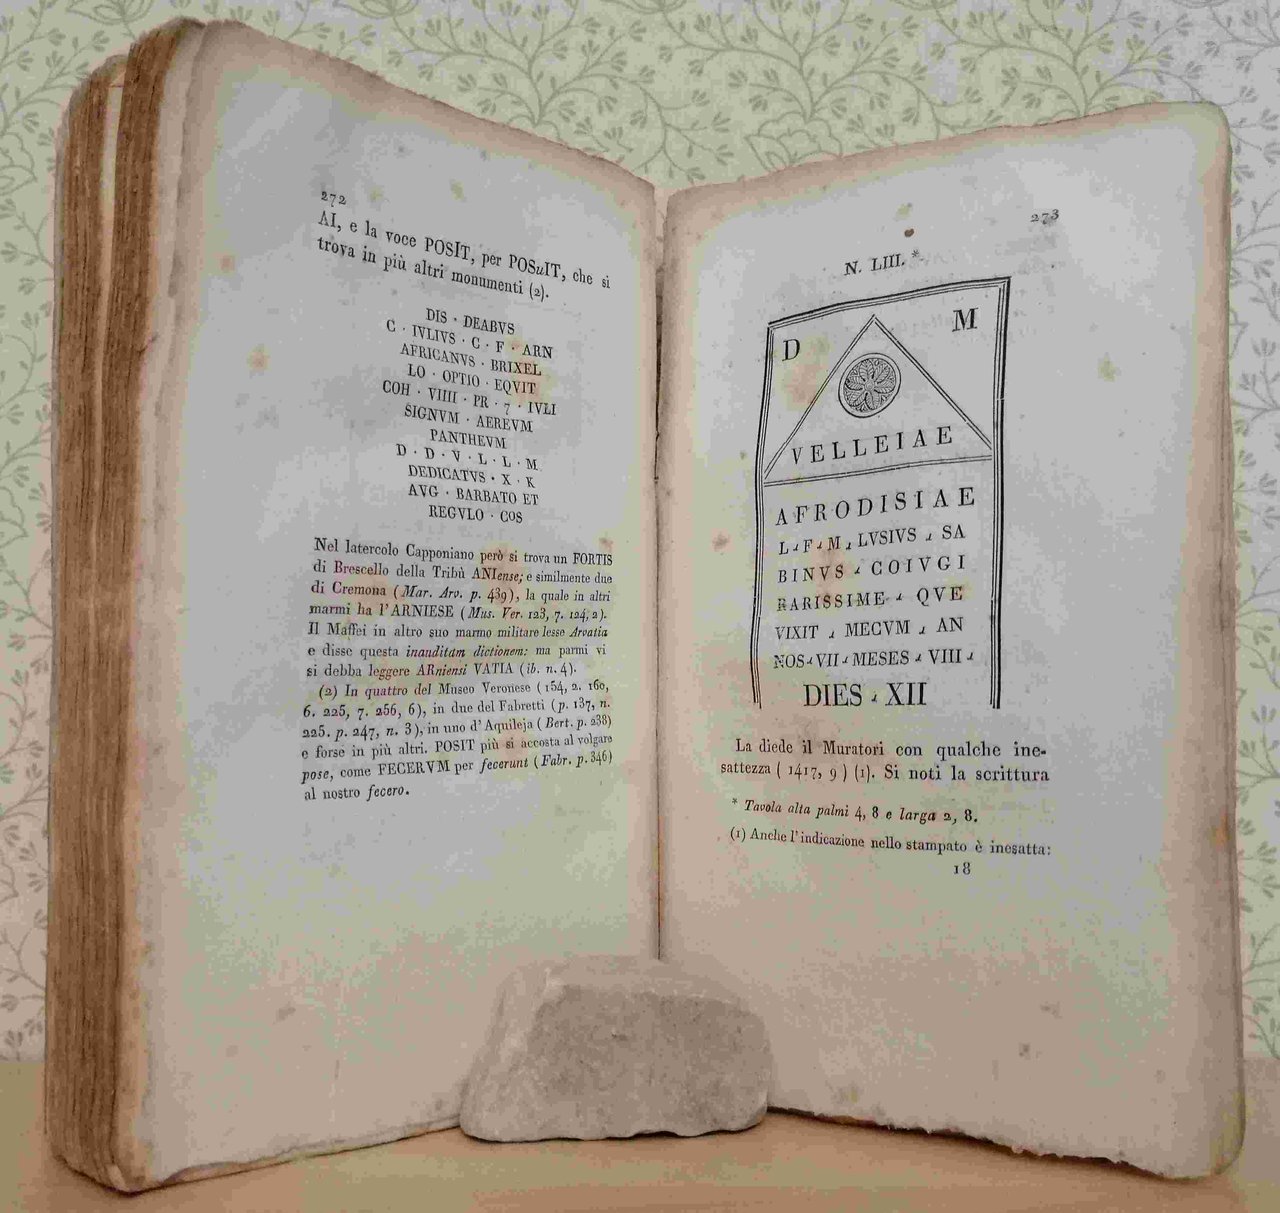 272
AI, e la voce POSIT, per POSuIT, che si
trova in più altri monumenti (2).
DIS · DEABVS
C · IVLIVS · C · F · ARN
AFRICANVS · BRIXEL
LO · OPTIO · EQVIT
COH · VIIII · PR · 7 · IVLI
SIGNVM · AEREVM
PANTHEVM
D · D · V · L · L · M
DEDICATVS · X · K
AVG · BARBATO ET
REGVLO · COS
Nel latercolo Capponiano però si trova un FORTIS
di Brescello della Tribù ANIense; e similmente due
di Cremona (Mar. Arv. p. 439), la quale in altri
marmi ha l'ARNIESE (Mus. Ver. 123, 7. 124, 2).
Il Maffei in altro suo marmo militare lesse Arvatia
e disse questa inauditam dictionem: ma parmi vi
si debba leggere ARniensi VATIA (ib. n. 4).
(2) In quattro del Museo Veronese (154, 2. 160,
6. 225, 7. 256, 6), in due del Fabretti (p. 137, n.
225. p. 247, n. 3), in uno d'Aquileja (Bert. p. 238)
e forse in più altri. POSIT più si accosta al volgare
pose, come FECERVM per fecerunt (Fabr. p. 346)
al nostro fecero.
273
N. LIII. *
D M
VELLEIAE
AFRODISIAE
L F M LVSIVS SA
BINVS COIVGI
RARISSIME QVE
VIXIT MECVM AN
NOS VII MESES VIII
DIES XII
La diede il Muratori con qualche ine-
sattezza (1417, 9) (1). Si noti la scrittura
* Tavola alta palmi 4, 8 e larga 2, 8.
(1) Anche l'indicazione nello stampato è inesatta:
18